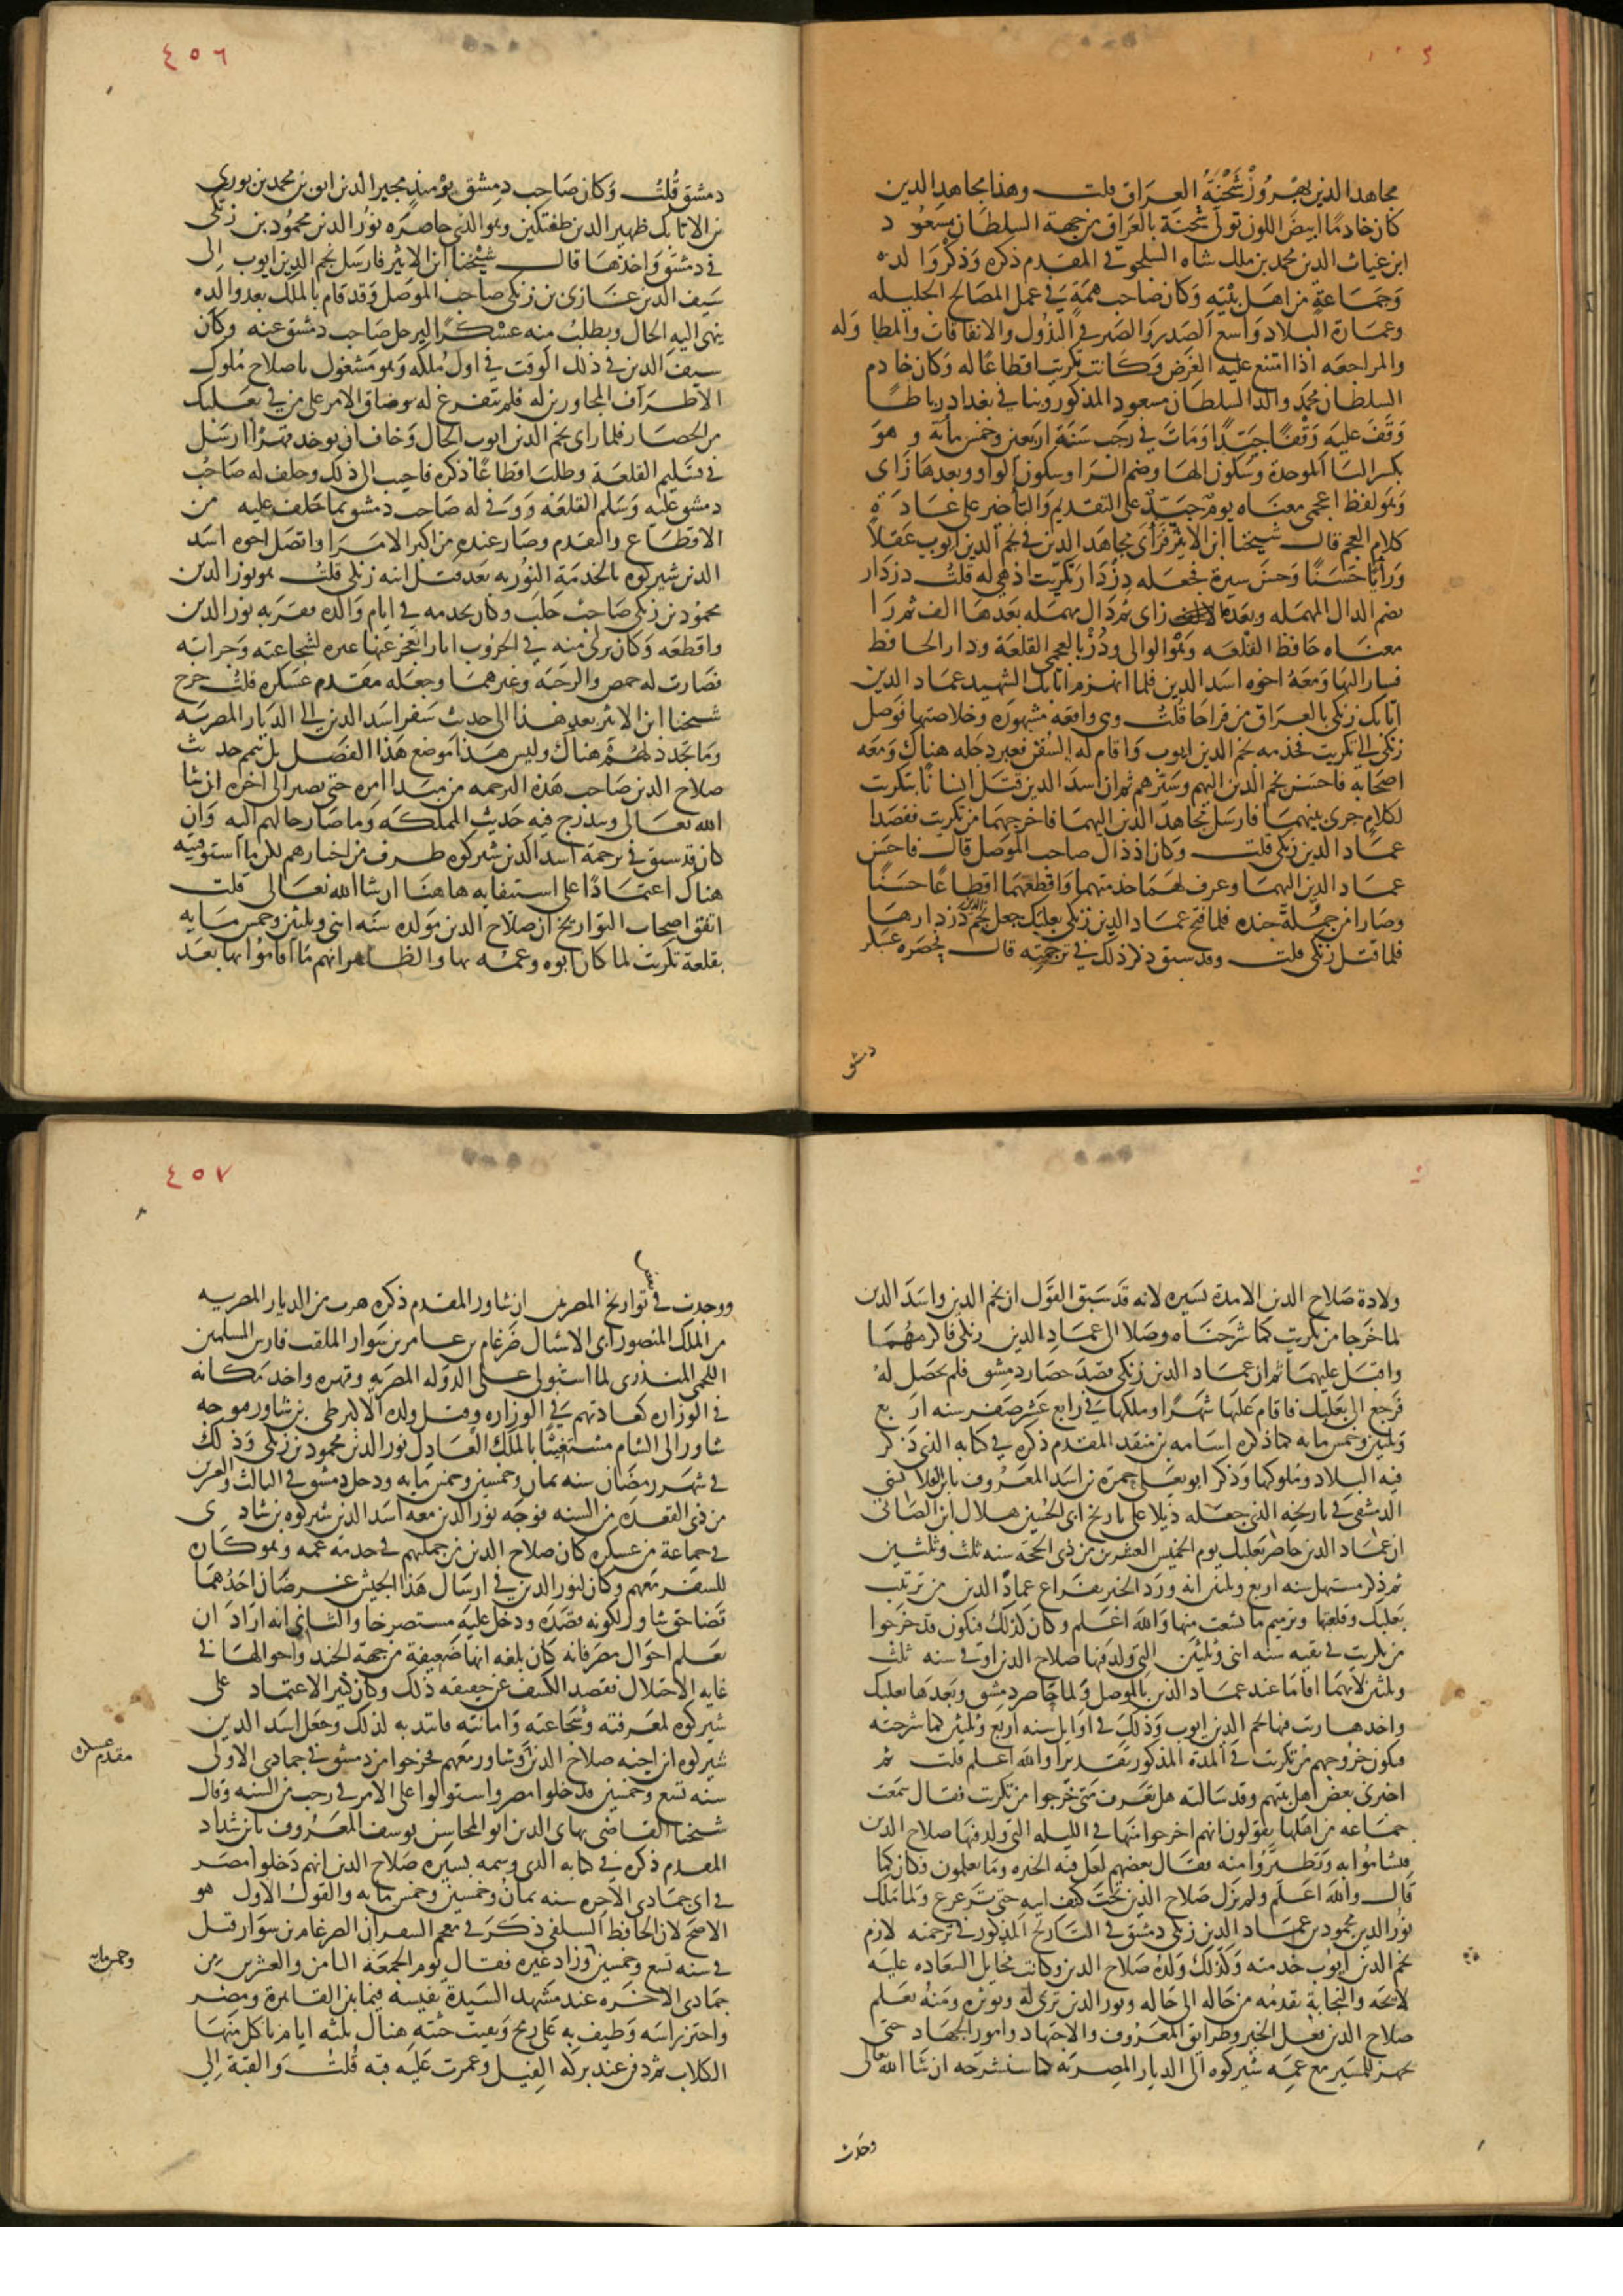 مجاهد الدين بهروز شحنة العراق قلت وهذا مجاهد الدين
كان خادمًا ابيض اللون تولى شحنة بالعراق من جهة السلطان مسعود
ابن غياث الدين محمد بن ملك شاه السلجوقي المقدم ذكره وذكر والده
وجماعة من اهل بيته وكان صاحب همة في عمل المصالح الجليله
وعمارة البلاد واسع الصدر والصبر في البذول والانفاقات والمطا وله
والمراجعه اذا امتنع عليه الغرض وكانت تكريت اقطاعًا له وكان خادم
السلطان محمد والد السلطان مسعود المذكور وبنا في بغداد رباطًا
وقف عليه وقفًا جيدًا ومات في رجب سنة اربعين وخمس مأية وهو
بكسر البا الموحدة وسكون الها وضم الرا وسكون الواو وبعدها زاى
وهو لفظ اعجمى معناه يوم جيد على التقديم والتأخير على عادة
كلام العجم قال شيخنا ابن الاثير فرأى مجاهد الدين في نجم الدين ايوب عقلًا
ورأيًا حسنًا وحسن سيرة فجعله دزدار تكريت اذ هي له قلت دزدار
بضم الدال المهمله وبعدها زاى ثم دال مهمله بعدها الف ثم را
معناه حافظ القلعه وهو الوالى ودز بالعجمى القلعة ودار الحافظ
فسار اليها ومعه اخوه اسد الدين فلما انهزم اتابك الشهيد عماد الدين
اتابك زنكى بالعراق من قراجا قلت وهي واقعه مشهوره وخلاصتها فوصل
زنكى الى تكريت فخدمه نجم الدين ايوب واقام له السفن فعبر دجله هناك ومعه
اصحابه فاحسن نجم الدين اليهم وسيرهم ثم ان اسد الدين قتل انسانًا بتكريت
لكلام جرى بينهما فارسل مجاهد الدين اليهما فاخرجهما من تكريت فقصدا
عماد الدين زنكى قلت وكان اذ ذاك صاحب الموصل قال فاحسن
عماد الدين اليهما وعرف لهما خدمتهما واقطعهما اقطاعًا حسنًا
وصارا من جملة جنده فلما فتح عماد الدين زنكى بعلبك جعل نجم الدين دزدارها
فلما قتل زنكى قلت وقد سبق ذكر ذلك في ترجمته قال فحصره عسكر
دمشق
٤٥٦
دمشق قلت وكان صاحب دمشق يومئذ مجير الدين ابق بن محمد بن بورى
بن الاتابك ظهير الدين طغتكين وهو الذى حاصره نور الدين محمود بن زنكى
في دمشق واخذها قال شيخنا ابن الاثير فارسل نجم الدين ايوب الى
سيف الدين غازى بن زنكى صاحب الموصل وقد قام بالملك بعد والده
ينهى اليه الحال ويطلب منه عسكرًا ليرحل صاحب دمشق عنه وكان
سيف الدين في ذلك الوقت في اول ملكه وهو مشغول باصلاح ملوك
الاطراف المجاورين له فلم يتفرغ له وضاق الامر على من في بعلبك
من الحصار فلما راى نجم الدين ايوب الحال وخاف ان يوخذ قهرًا ارسل
في تسليم القلعة وطلب اقطاعًا ذكره فاجيب الى ذلك وحلف له صاحب
دمشق عليه وسلم القلعه ووفى له صاحب دمشق بما حلف عليه من
الاقطاع والتقدم وصار عنده من اكبر الامرا واتصل اخوه اسد
الدين شيركوه بالخدمة النوريه بعد قتل ابيه زنكى قلت هو نور الدين
محمود بن زنكى صاحب حلب وكان يخدمه في ايام والده فقربه نور الدين
واقطعه وكان يرى منه في الحروب اثارا يعجز عنها غيره لشجاعته وجراته
فصارت له حمص والرحبة وغيرهما وجعله مقدم عسكره قلت خرج
شيخنا ابن الاثير بعد هذا الى حديث سفر اسد الدين الى الديار المصريه
وما تجدد لهم هناك وليس هذا موضع هذا الفصل بل نتمم حديث
صلاح الدين صاحب هذه الترجمه من مبدا امره حتى نصير الى اخره ان شا
الله تعالى ويندرج فيه حديث المملكه وما صار حالهم اليه وان
كان قد سبق في ترجمة اسد الدين شيركوه طرف من اخبارهم لكن ما استوفيته
هناك اعتمادًا على استيفايه هاهنا ان شا الله تعالى قلت
اتفق اصحاب التواريخ ان صلاح الدين مولده سنه اثنى وثلثين وخمس مايه
بقلعة تكريت لما كان ابوه وعمه بها والظاهر انهم ما اقاموا بها بعد
ولادة صلاح الدين الا مدة يسيره لانه قد سبق القول ان نجم الدين واسد الدين
لما خرجا من تكريت كما شرحناه وصلا الى عماد الدين زنكى فاكرمهما
واقبل عليهما ثم ان عماد الدين زنكى قصد حصار دمشق فلم يحصل له
فرجع الى بعلبك فاقام عليها شهرًا وملكها في رابع عشر صفر سنه اربع
وثلثين وخمس مايه كما ذكره اسامه بن منقد المقدم ذكره في كتابه الذى ذكر
فيه البلاد وملوكها وذكر ابو يعلى حمزة بن اسد المعروف بابن القلانسى
الدمشقى في تاريخه الذى جعله ذيلا على تاريخ ابى الحسين هلال ابن الصابى
ان عماد الدين حاصر بعلبك يوم الخميس العشرين من ذى الحجة سنه ثلث وثلثين
ثم ذكر مستهل سنه اربع وثلثين انه ورد الخبر بفراغ عماد الدين من ترتيب
بعلبك وقلعتها وترميم ما تشعث منها والله اعلم وكان كذلك فتكون قد خرجوا
من تكريت في بقيه سنه اثنى وثلثين التى ولد فيها صلاح الدين او في سنه ثلث
وثلثين لانهما اقاما عند عماد الدين بالموصل ولما حاصر دمشق وبعدها بعلبك
واخدها رتب فيها نجم الدين ايوب وذلك في اوايل سنه اربع وثلثين كما شرحته
فيكون خروجهم من تكريت في المدة المذكوره تقديرًا والله اعلم قلت ثم
اخبرنى بعض اهل بيتهم وقد سالته هل تعرف متى خرجوا من تكريت فقال سمعت
جماعه من اهلها يقولون انهم اخرجوا منها في الليله التى ولد فيها صلاح الدين
فتشاموا به وتطيروا منه فقال بعضهم لعل فيه الخيره وما تعلمون فكان كما
قال والله اعلم ولم يزل صلاح الدين تحت كنف ابيه حتى ترعرع ولما ملك
نور الدين محمود بن عماد الدين زنكى دمشق في التاريخ المذكور في ترجمته لازم
نجم الدين ايوب خدمته وكذلك ولده صلاح الدين وكانت مخايل السعاده عليه
لايحه والنجابة تقدمه من حاله الى حاله ونور الدين يرى له ويوثره ومنه تعلم
صلاح الدين فعل الخير وطرايق المعروف والاجتهاد وامور الجهاد حتى
تجهز للمسير مع عمه شيركوه الى الديار المصريه كما سنشرحه ان شا الله تعالى
وجدت
٤٥٧
ووجدت في بعض تواريخ المصريين ان شاور المقدم ذكره هرب من الديار المصريه
من الملك المنصور ابى الاشبال ضرغام بن عامر بن سوار الملقب فارس المسلمين
اللخمى المنذرى لما استولى على الدوله المصريه وقهره واخد مكانه
في الوزاره كعادتهم في الوزاره وقتل ولده الاكبر طى بن شاور فتوجه
شاور الى الشام مستغيثًا بالملك العادل نور الدين محمود بن زنكى وذلك
في شهر رمضان سنه ثمان وخمسين وخمس مايه ودخل دمشق في الثالث والعشرين
من ذى القعده من السنه فوجه نور الدين معه اسد الدين شيركوه بن شادى
في جماعة من عسكره كان صلاح الدين من جملتهم في خدمة عمه وهو كاره
للسفر معهم وكان لنور الدين في ارسال هذا الجيش غرضان احدهما
قضا حق شاور لكونه قصده ودخل عليه مستصرخا والثانى انه اراد ان
يعلم احوال مصر فانه كان بلغه انها ضعيفة من جهة الجند واحوالها في
غايه الاختلال فقصد الكشف عن حقيقه ذلك وكان كثير الاعتماد على
شيركوه لمعرفته وشجاعته وامانته فانتدبه لذلك وجعل اسد الدين
شيركوه ابن اخيه صلاح الدين وشاور معهم فخرجوا من دمشق في جمادى الاولى
مقدم عسكره
سنه تسع وخمسين فدخلوا مصر واستولوا على الامر في رجب من السنه وقال
شيخنا القاضى بهاى الدين ابو المحاسن يوسف المعروف بابن شداد
المقدم ذكره في كتابه الذى وسمه بسيره صلاح الدين انهم دخلوا مصر
في اى جمادى الاخره سنه ثمان وخمسين وخمس مايه والقول الاول هو
الاصح لان الحافظ السلفى ذكر في معجم السفر ان الضرغام بن سوار قتل
في سنه تسع وخمسين وزاد غيره فقال يوم الجمعه الثامن والعشرين من
وخمس مايه
جمادى الاخره عند مشهد السيدة نفيسه فيما بين القاهرة ومصر
واحتز راسه وطيف به على رمح وبقيت جثته هناك ثلثه ايام تاكل منها
الكلاب ثم دفن عند بركه الفيل وعمرت عليه قبه قلت والقبة الى